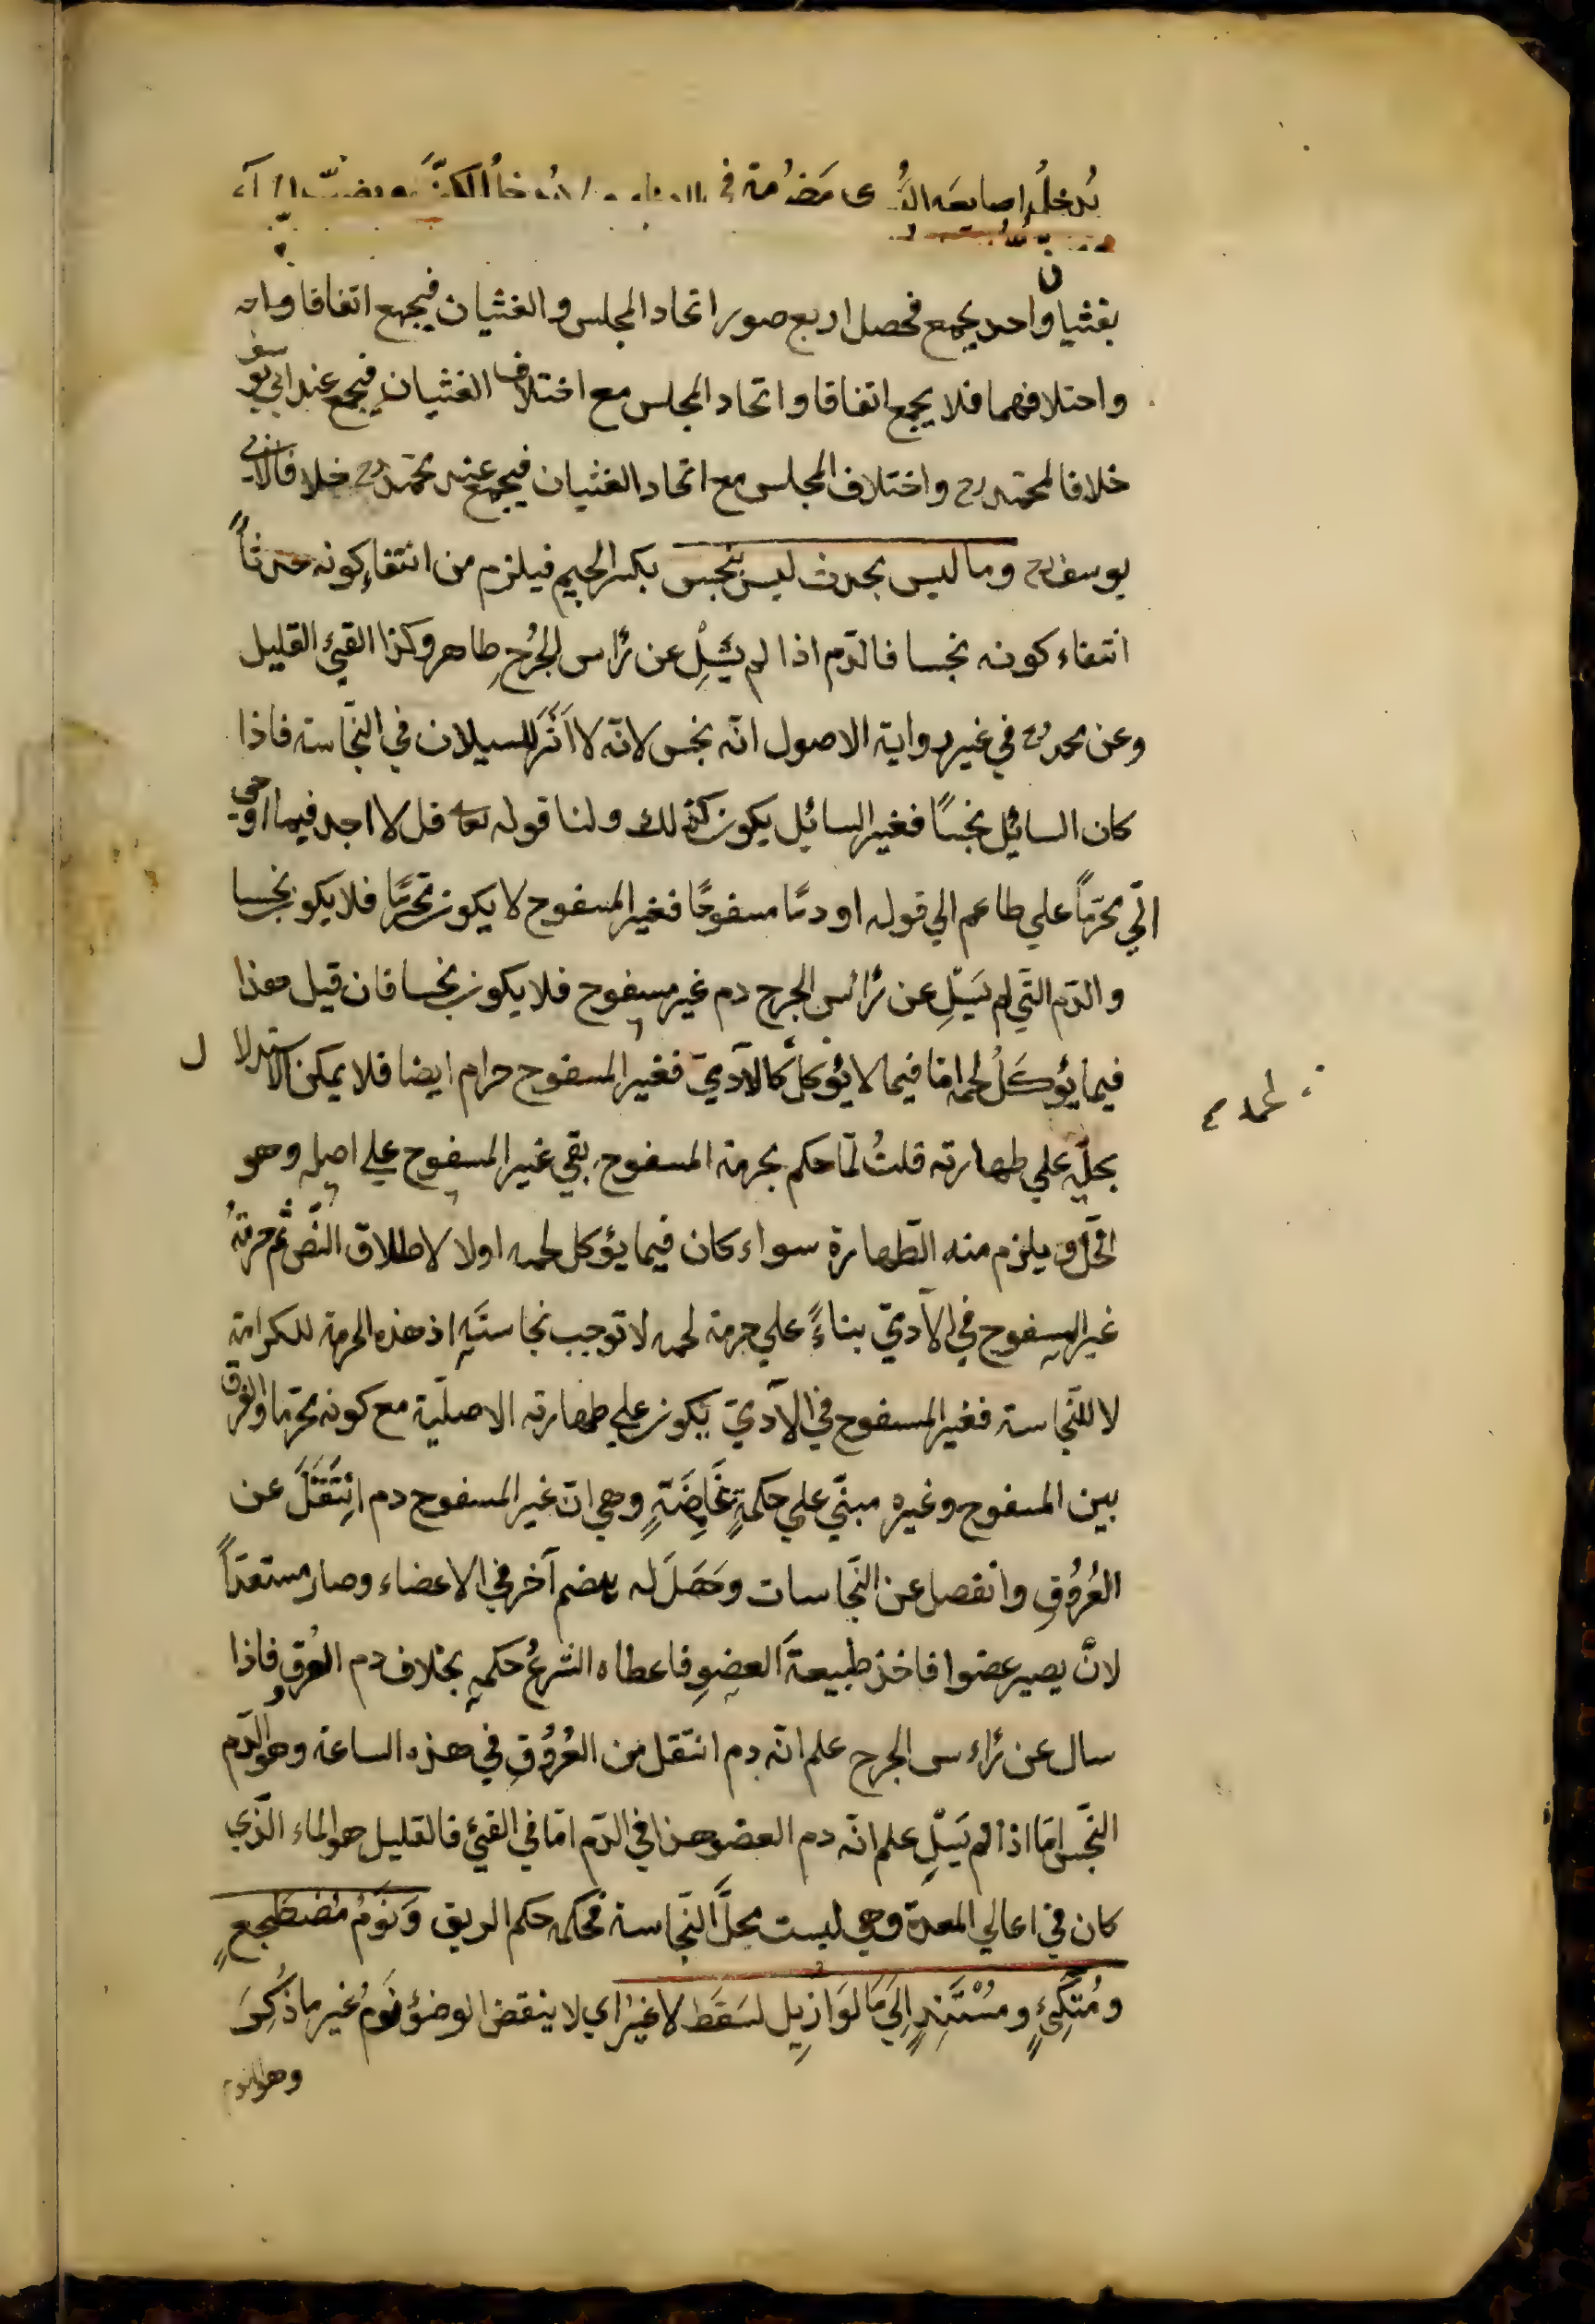 يُدخلُ اصابعَه اليُسرى مَضمُومة في الاناء ولا يُدخلُ الكفّ ويصبّ الماء
بغثيان واحد يجمع فحصل اربع صور اتحاد المجلس والغثيان فيجمع اتفاقا واته
واختلافهما فلا يجمع اتفاقا واتحاد المجلس مع اختلاف الغثيان فيجمع عند ابي يوسف
خلافا لمحمد رح واختلاف المجلس مع اتحاد الغثيان فيجمع عند محمد رح خلافا لابي
يوسف رح وما ليس بحدث ليس بنجِس بكسر الجيم فيلزم من انتفاء كونه حدثاً
انتفاء كونه نجسا فالدّم اذا لم يسِلْ عن رأس الجُرحِ طاهر وكذا القيئ القليل
وعن محمد رح في غير رواية الاصول انّه نجس لانّه لا اَثَرَ للسيلان في النّجاسة فاذا
كان السائل نجسًا فغير السائل يكون كذلك ولنا قوله تعا قل لا اجد فيما اوحي
اليّ محرّماً علي طاعم الي قوله او دمًا مسفوحًا فغير المسفوح لا يكون محرّمًا فلا يكون نجسا
والدّم الّتي لم يَسِلْ عن رأس الجرح دم غير مسفوح فلا يكون نجسا فان قيل هذا
فيما يؤكَلُ لحمه امّا فيما لا يؤكل كالآدميّ فغير المسفوح حرام ايضا فلا يمكن الاستدلال
لحمه م
بحلّه علي طهارته قلتُ لمّا حكم بحرمة المسفوح بقي غير المسفوح علي اصله وهو
الحلّ ويلزم منه الطّهارة سواء كان فيما يؤكل لحمه اولا لاطلاق النّصّ ثم حرمةُ
غير المسفوح في الآدميّ بناءً علي حرمة لحمه لا توجب نجاستَه اذ هذه الحرمة للكرامة
لا للنّجاسة فغير المسفوح في الآدميّ يكون علي طهارته الاصليّة مع كونه محرّما والفرق
بين المسفوح وغيره مبنيّ علي حكمةٍ غامِضَةٍ وهي انّ غير المسفوح دم اِنتَقَلَ عن
العُرُوْقِ وانفصل عن النّجاسات وحَصَلَ له هضم آخر في الاعضاء وصار مستعدّاً
لانْ يصير عضوا فاخذ طبيعةَ العضوِ فاعطاه الشرعُ حكمه بخلاف دم العُروق فاذا
سال عن رأس الجرح علم انّه دم انتقل من العُرُوقِ في هذه الساعة وهو الدّم
النّجس امّا اذا لم يَسِلْ علم انّه دم العضو هذا في الدّم امّا في القيئ فالقليل هو الماء الّذي
كان في اعالي المعدة وهي ليست محلَّ النّجاسة فحكمه حكم الريق وَنَوْمُ مُضْطَجِعٍ
ومُتّكِئٍ ومسْتَنِدٍ اِلَيَ مَا لَوَ ازِيل لسَقَط لا غيرُ اي لا ينقض الوضوء نَومُ غير ما ذُكِرَ
وهو النوم